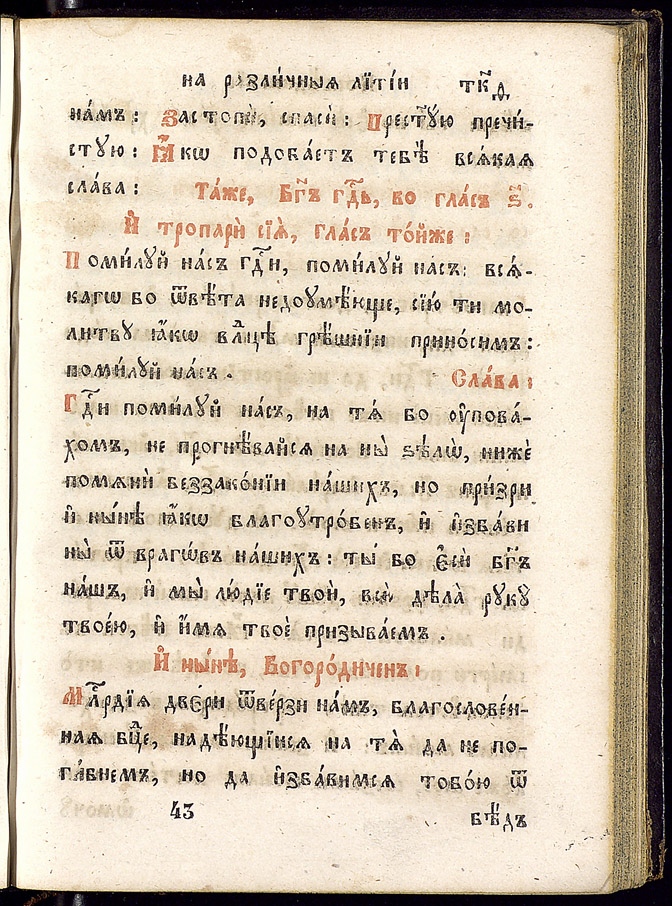 на разли́чныѧ лїті́и тк҃ѳ
на́мъ: Застопѝ, спасѝ: Прест҃ꙋю пречи́-
стꙋю: Ꙗ҆́кѡ подоба́етъ тебѣ̀ всѧ́каѧ
сла́ва: Та́же, Бг҃ъ гдⷭ҇ь, во гла́съ ѕ҃.
И҆ тропарѝ сїѧ̀, гла́съ то́йже:
Поми́лꙋй на́съ гдⷭ҇и, поми́лꙋй на́съ: всѧ́-
кагѡ бо ѿвѣ́та недоꙋмѣ́юще, сїю̀ ти мо-
ли́твꙋ ꙗ҆́кѡ влⷣцѣ грѣ́шнїи прино́симъ:
поми́лꙋй на́съ. Сла́ва:
Гдⷭ҇и поми́лꙋй на́съ, на тѧ́ бо ᲂу҆пова́-
хомъ, не прогнѣ́вайсѧ на ны̀ ѕѣлѡ̀, нижѐ
помѧнѝ беззако́нїи на́шихъ, но при́зри
и҆ ны́нѣ ꙗ҆́кѡ благоꙋтро́бенъ, и҆ и҆зба́ви
ны̀ ѿ врагѡ́въ на́шихъ: ты́ бо є҆сѝ бг҃ъ
на́шъ, и҆ мы̀ лю́дїе твоѝ, всѝ дѣла̀ рꙋкꙋ́
твоє́ю, и҆ и҆́мѧ твоѐ призыва́емъ.
И҆ ны́нѣ, Богоро́диченъ:
Млⷭ҇рдїѧ две́ри ѿве́рзи на́мъ, благослове́н-
наѧ бцⷣе, надѣ́ющїисѧ на тѧ̀ да не по-
ги́бнемъ, но да и҆зба́вимсѧ тобо́ю ѿ
43 бѣ́дъ